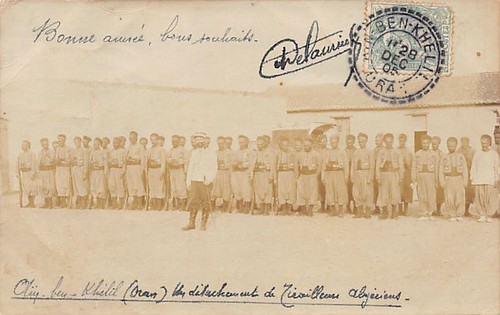 Bonne année, bons souhaits.
Delaurier
BEN-KHELIL
28
DEC
05
ORAN
Aïn-ben-Khélil (Oran) Un détachement de Tirailleurs algériens.